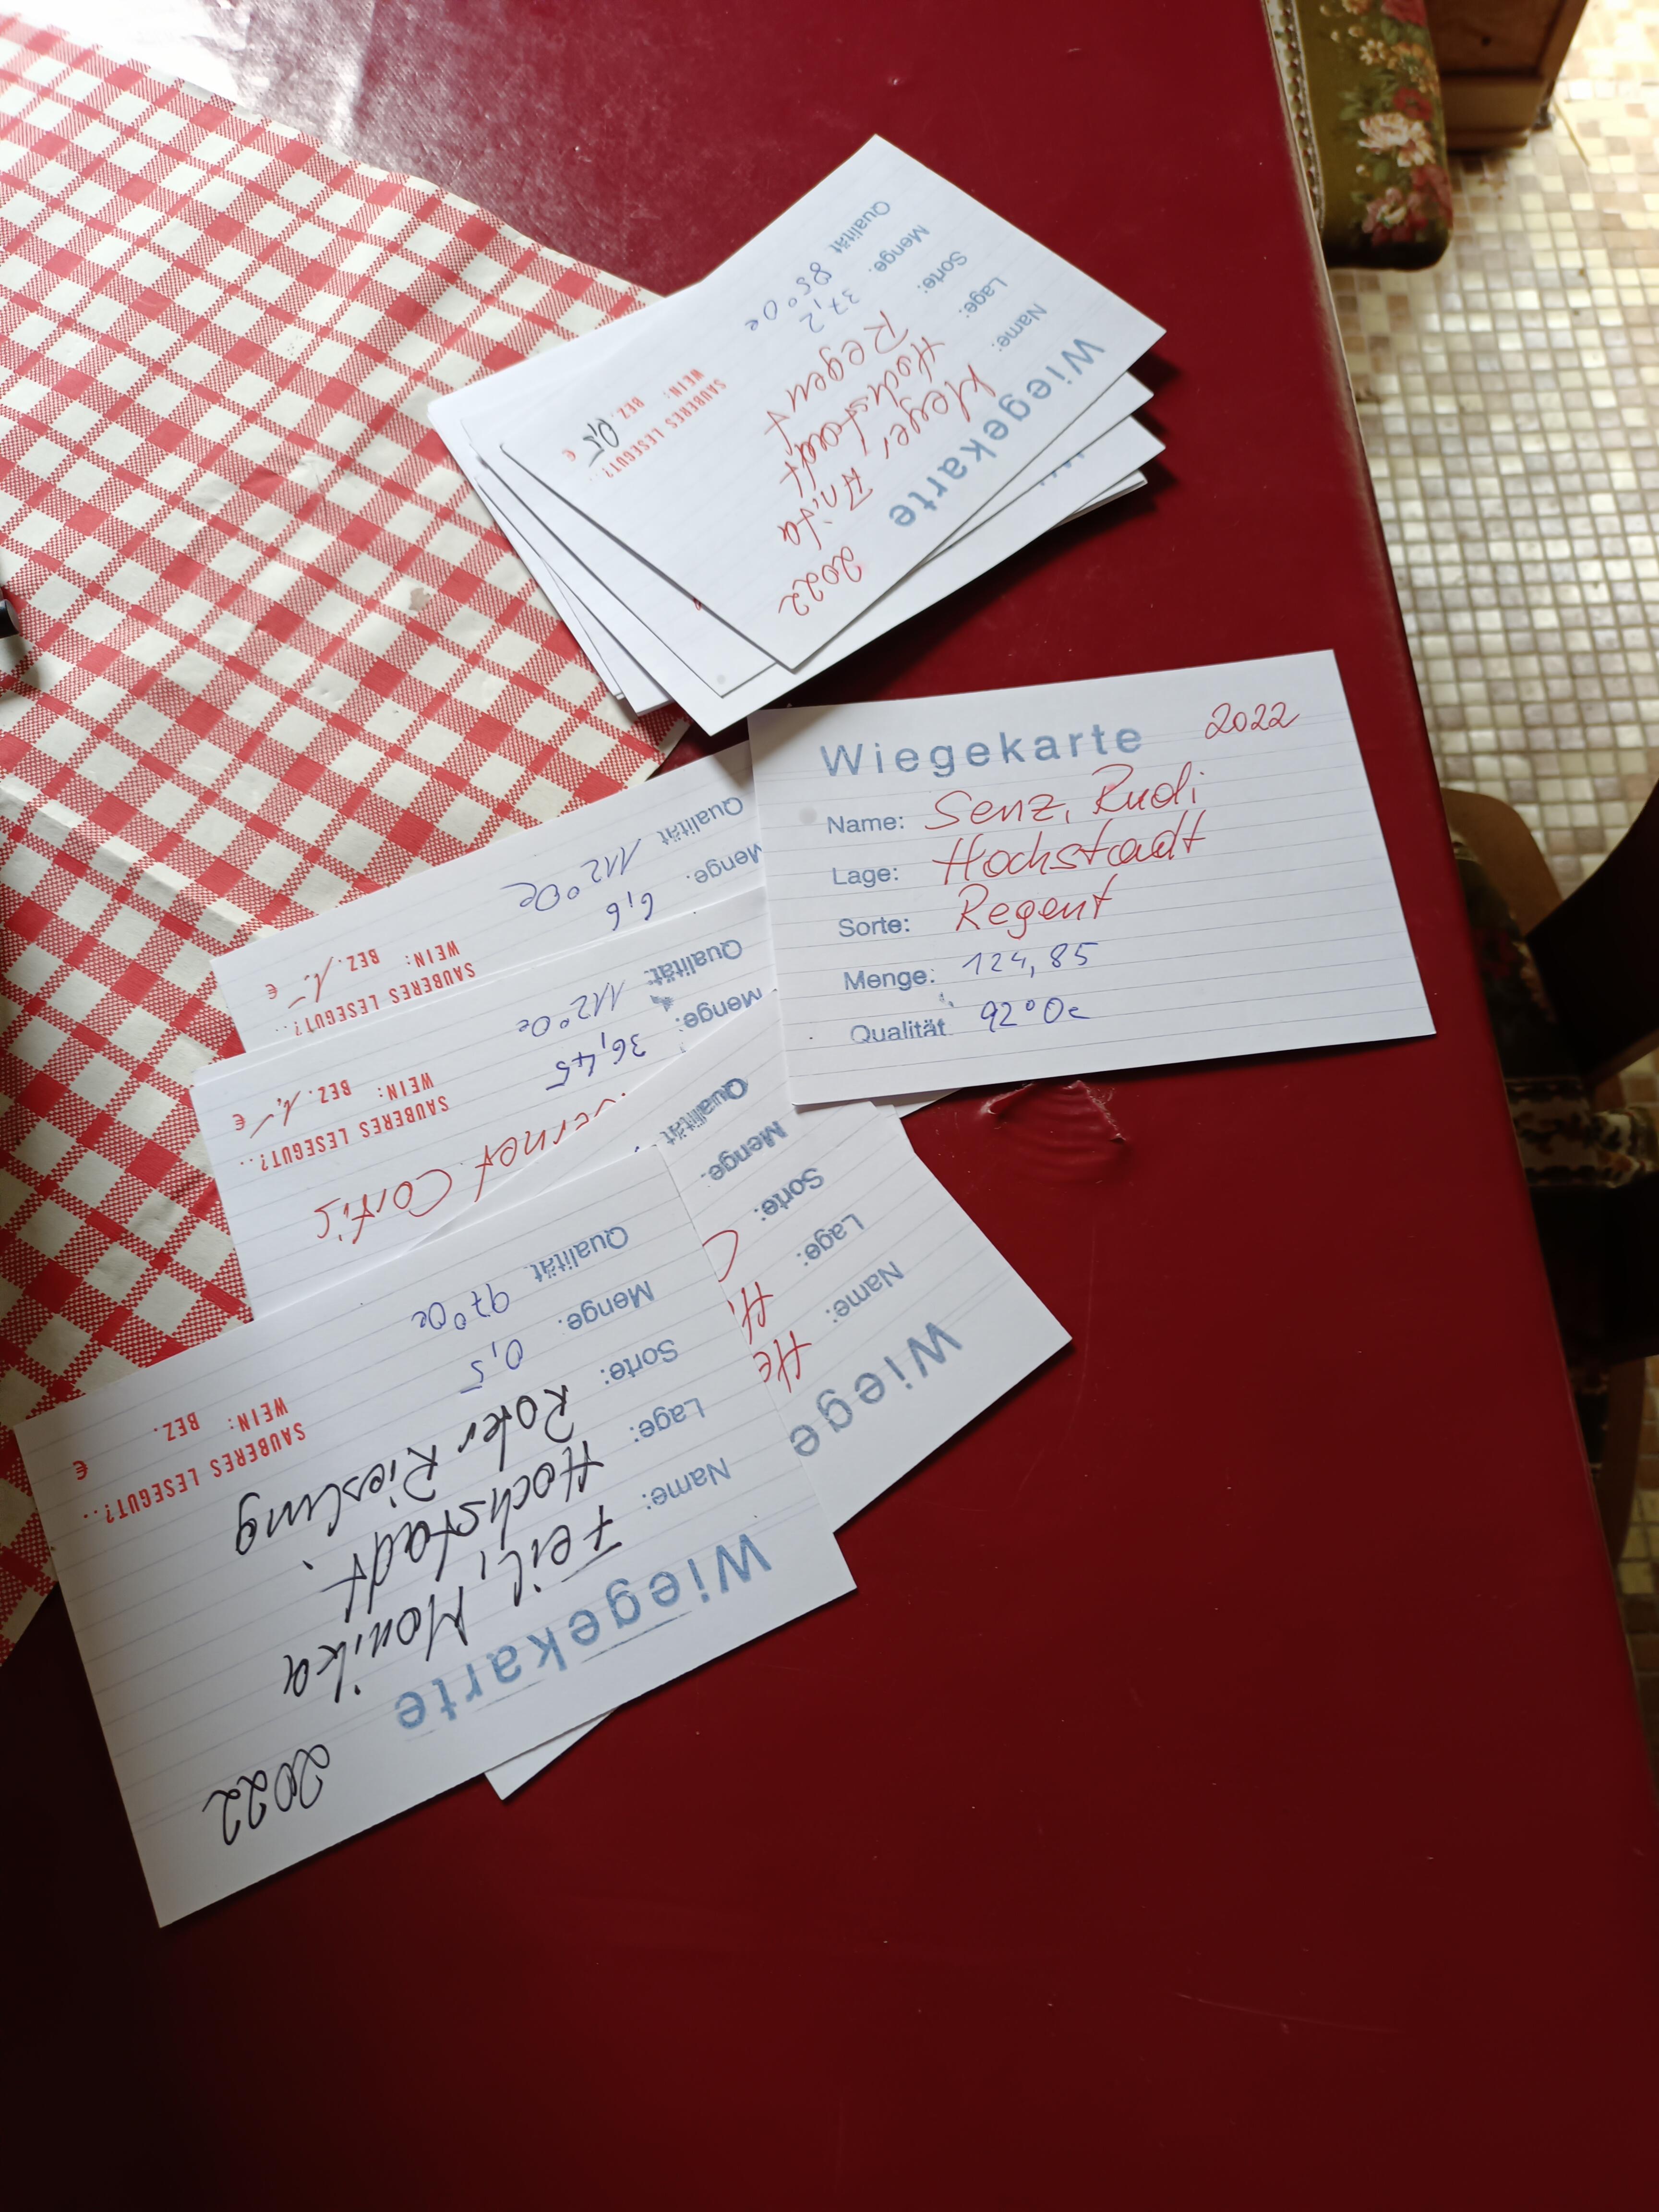 Wiegekarte 2022
Name: Meyer, Anita
Lage: Hochstadt
Sorte: Regent
Menge: 37,2
Qualität 85° Oe
SAUBERES LESEGUT?..
WEIN: BEZ. 0,5 €
Wiegekarte 2022
Name: Senz, Rudi
Lage: Hochstadt
Sorte: Regent
Menge: 124,85
Qualität 92° Oe
Menge: 6,6
Qualität 112° Oe
SAUBERES LESEGUT?..
WEIN: BEZ. 1,- €
Cortis
Menge: 36,45
Qualität 112° Oe
SAUBERES LESEGUT?..
WEIN: BEZ. 1,- €
Wiege
Name: He
Lage:
Sorte: C
Menge:
Qualität
Wiegekarte 2022
Name: Feil, Monika
Lage: Hochstadt.
Sorte: Roter Riesling
Menge: 0,5
Qualität 97° Oe
SAUBERES LESEGUT?..
WEIN: BEZ. €